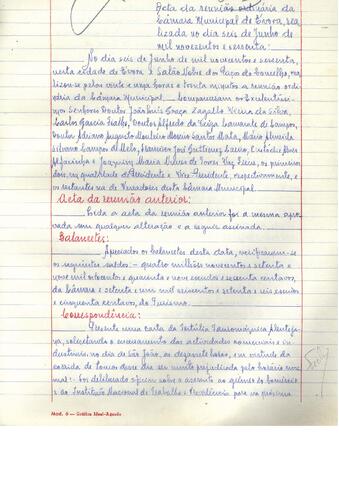 Acta da reunião ordinária da
Câmara Municipal de Évora, rea-
lizada no dia seis de Junho de
mil novecentos e sessenta:
No dia seis de Junho de mil novecentos e sessenta,
nesta cidade de Évora e Salão Nobre dos Paços do Concelho, rea-
lizou-se pelas vinte e uma horas e trinta minutos a reunião ordi-
nária da Câmara Municipal. Compareceram os Excelentíssi-
mos Senhores Doutor João Luís Vieira da Silva,
Carlos Garcia Fialho, Doutor Alfredo
Doutor Mata, Mário Almeida
Silvano Campos de Melo, Francisco José
e Joaquim Maria de Torres Vaz Freire, os primeiros
dois, na qualidade de Presidente e Vice-Presidente, respectivamente, e
os restantes na de Vereadores desta Câmara Municipal.
Acta da reunião anterior:
Lida a acta da reunião anterior foi a mesma apro-
vada sem qualquer alteração e a seguir assinada.
Balancetes:
Apreciados os balancetes desta data, verificaram-se
os seguintes saldos: quatro milhões novecentos e setenta e
nove mil oitocentos e quarenta e nove escudos e sessenta centavos,
da Câmara e setenta e um mil seiscentos e setenta e seis escudos
e cinquenta centavos, do Turismo.
Correspondência:
Presente uma carta da Tertúlia Tauromáquica Alenteja-
na, solicitando o encerramento das actividades comerciais e in-
dustriais no dia de São João, às dezassete horas, em virtude da
corrida de touros desse dia ser muito prejudicada pelo horário nor-
mal: Foi deliberado oficiar sobre o assunto ao grémio do Comércio
e do Instituto Nacional de Trabalho e Previdência para na próxima
Mod. 6 — Gráfica Ideal-Agueda